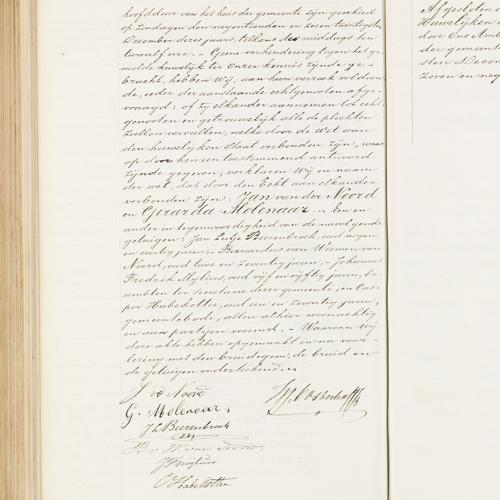 hoofddeur van het huis der gemeente zijn geschied
op Zondagen den negentienden en zesen twintigsten
December dezes jaars, telkens des middags ten
twaalf ure. – Geene verhindering tegen het ge-
melde huwelijk ter Onzer kennis zijnde ge-
bracht, hebben Wij, aan hun verzoek voldoen-
de, ieder der aanstaande echtgenooten afge-
vraagd: of zij elkander aannemen tot echt-
genooten en getrouwelijk alle de plichten
zullen vervullen, welke door de Wet aan
den huwelijken Staat verbonden zijn, waar
op door hen een toestemmend antwoord
zijnde gegeven, verklaren Wij in naam
der wet, dat door den Echt aan elkander
verbonden zijn: Jan van der Noord
en Gerarda Molenaar. – Een en
ander in tegenwoordigheid van de navolgende
getuigen: Jan Beerenbroek, oud negen
en veertig jaren, Bernardus van
Noord, oud twee en zeventig jaren, – Johannes
Fredrik Mylius, oud vijf en vijftig jaren, be-
ambten ter Secretarie dezer gemeente, en Cas-
per Habekotte, oud een en zeventig jaren,
gemeentebode, allen alhier woonachtig
en aan partijen vreemd. – Waarvan Wij
deze akte hebben opgemaakt en na voor-
lezing met den bruidegom, de bruid en
de getuigen onderteekend.
J vd Noord
G. Molenaar
J L Beerenbroek
JFMylius
C Habekotte
Afgesloten
Huwelijken
door Ons Amb
der gemeente
sten Decem
zeven en neg